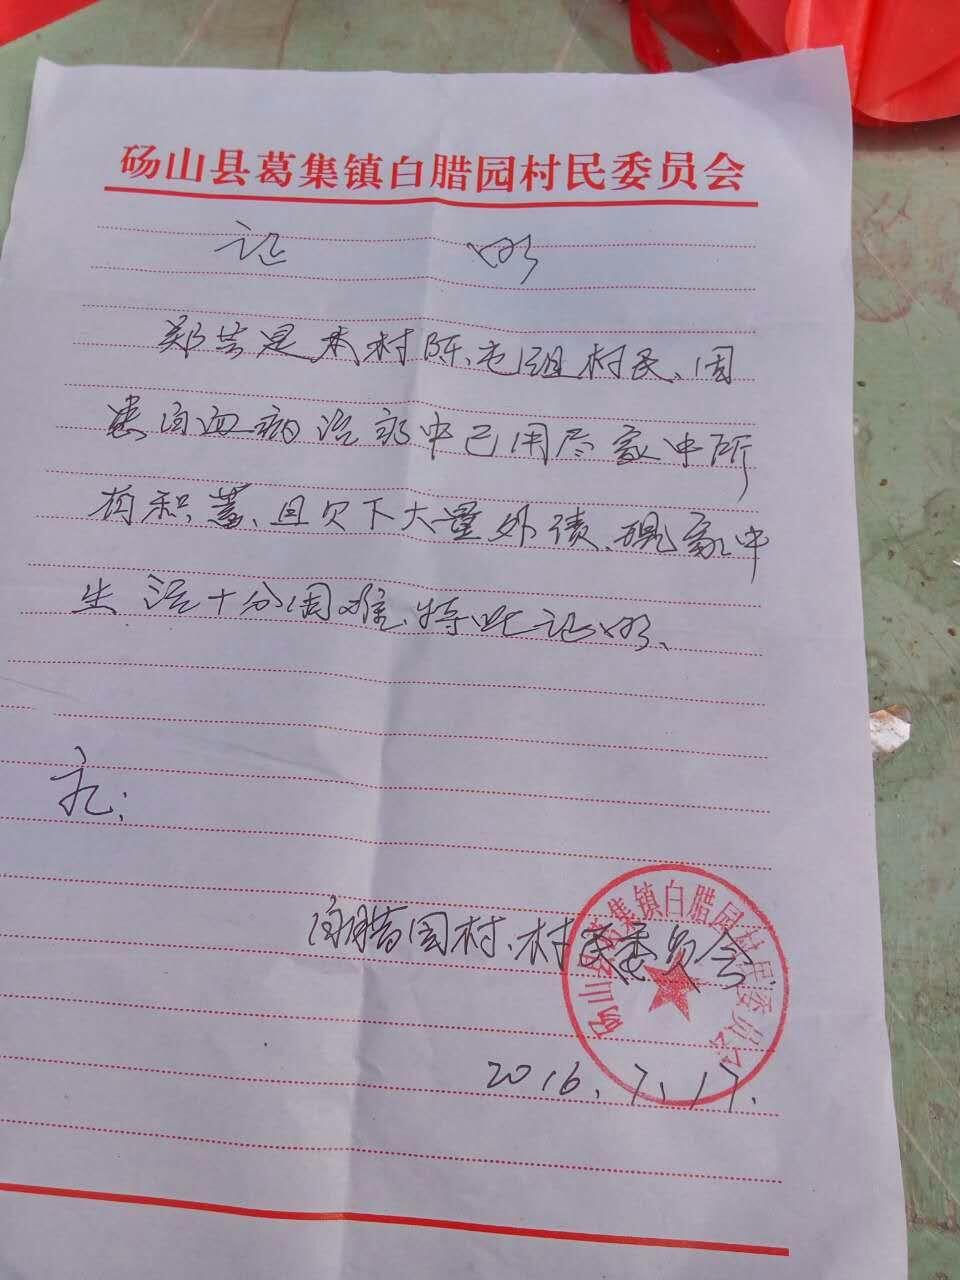 砀山县葛集镇白腊园村民委员会
证 明
郑芸是本村陈屯组村民、因
患白血病治疗中已用尽家中所
有积蓄、且欠下大量外债、现家中
生活十分困难、特此证明、
白腊园村、村民委员会
砀山县葛集镇白腊园村民委员会
2016.7.17.